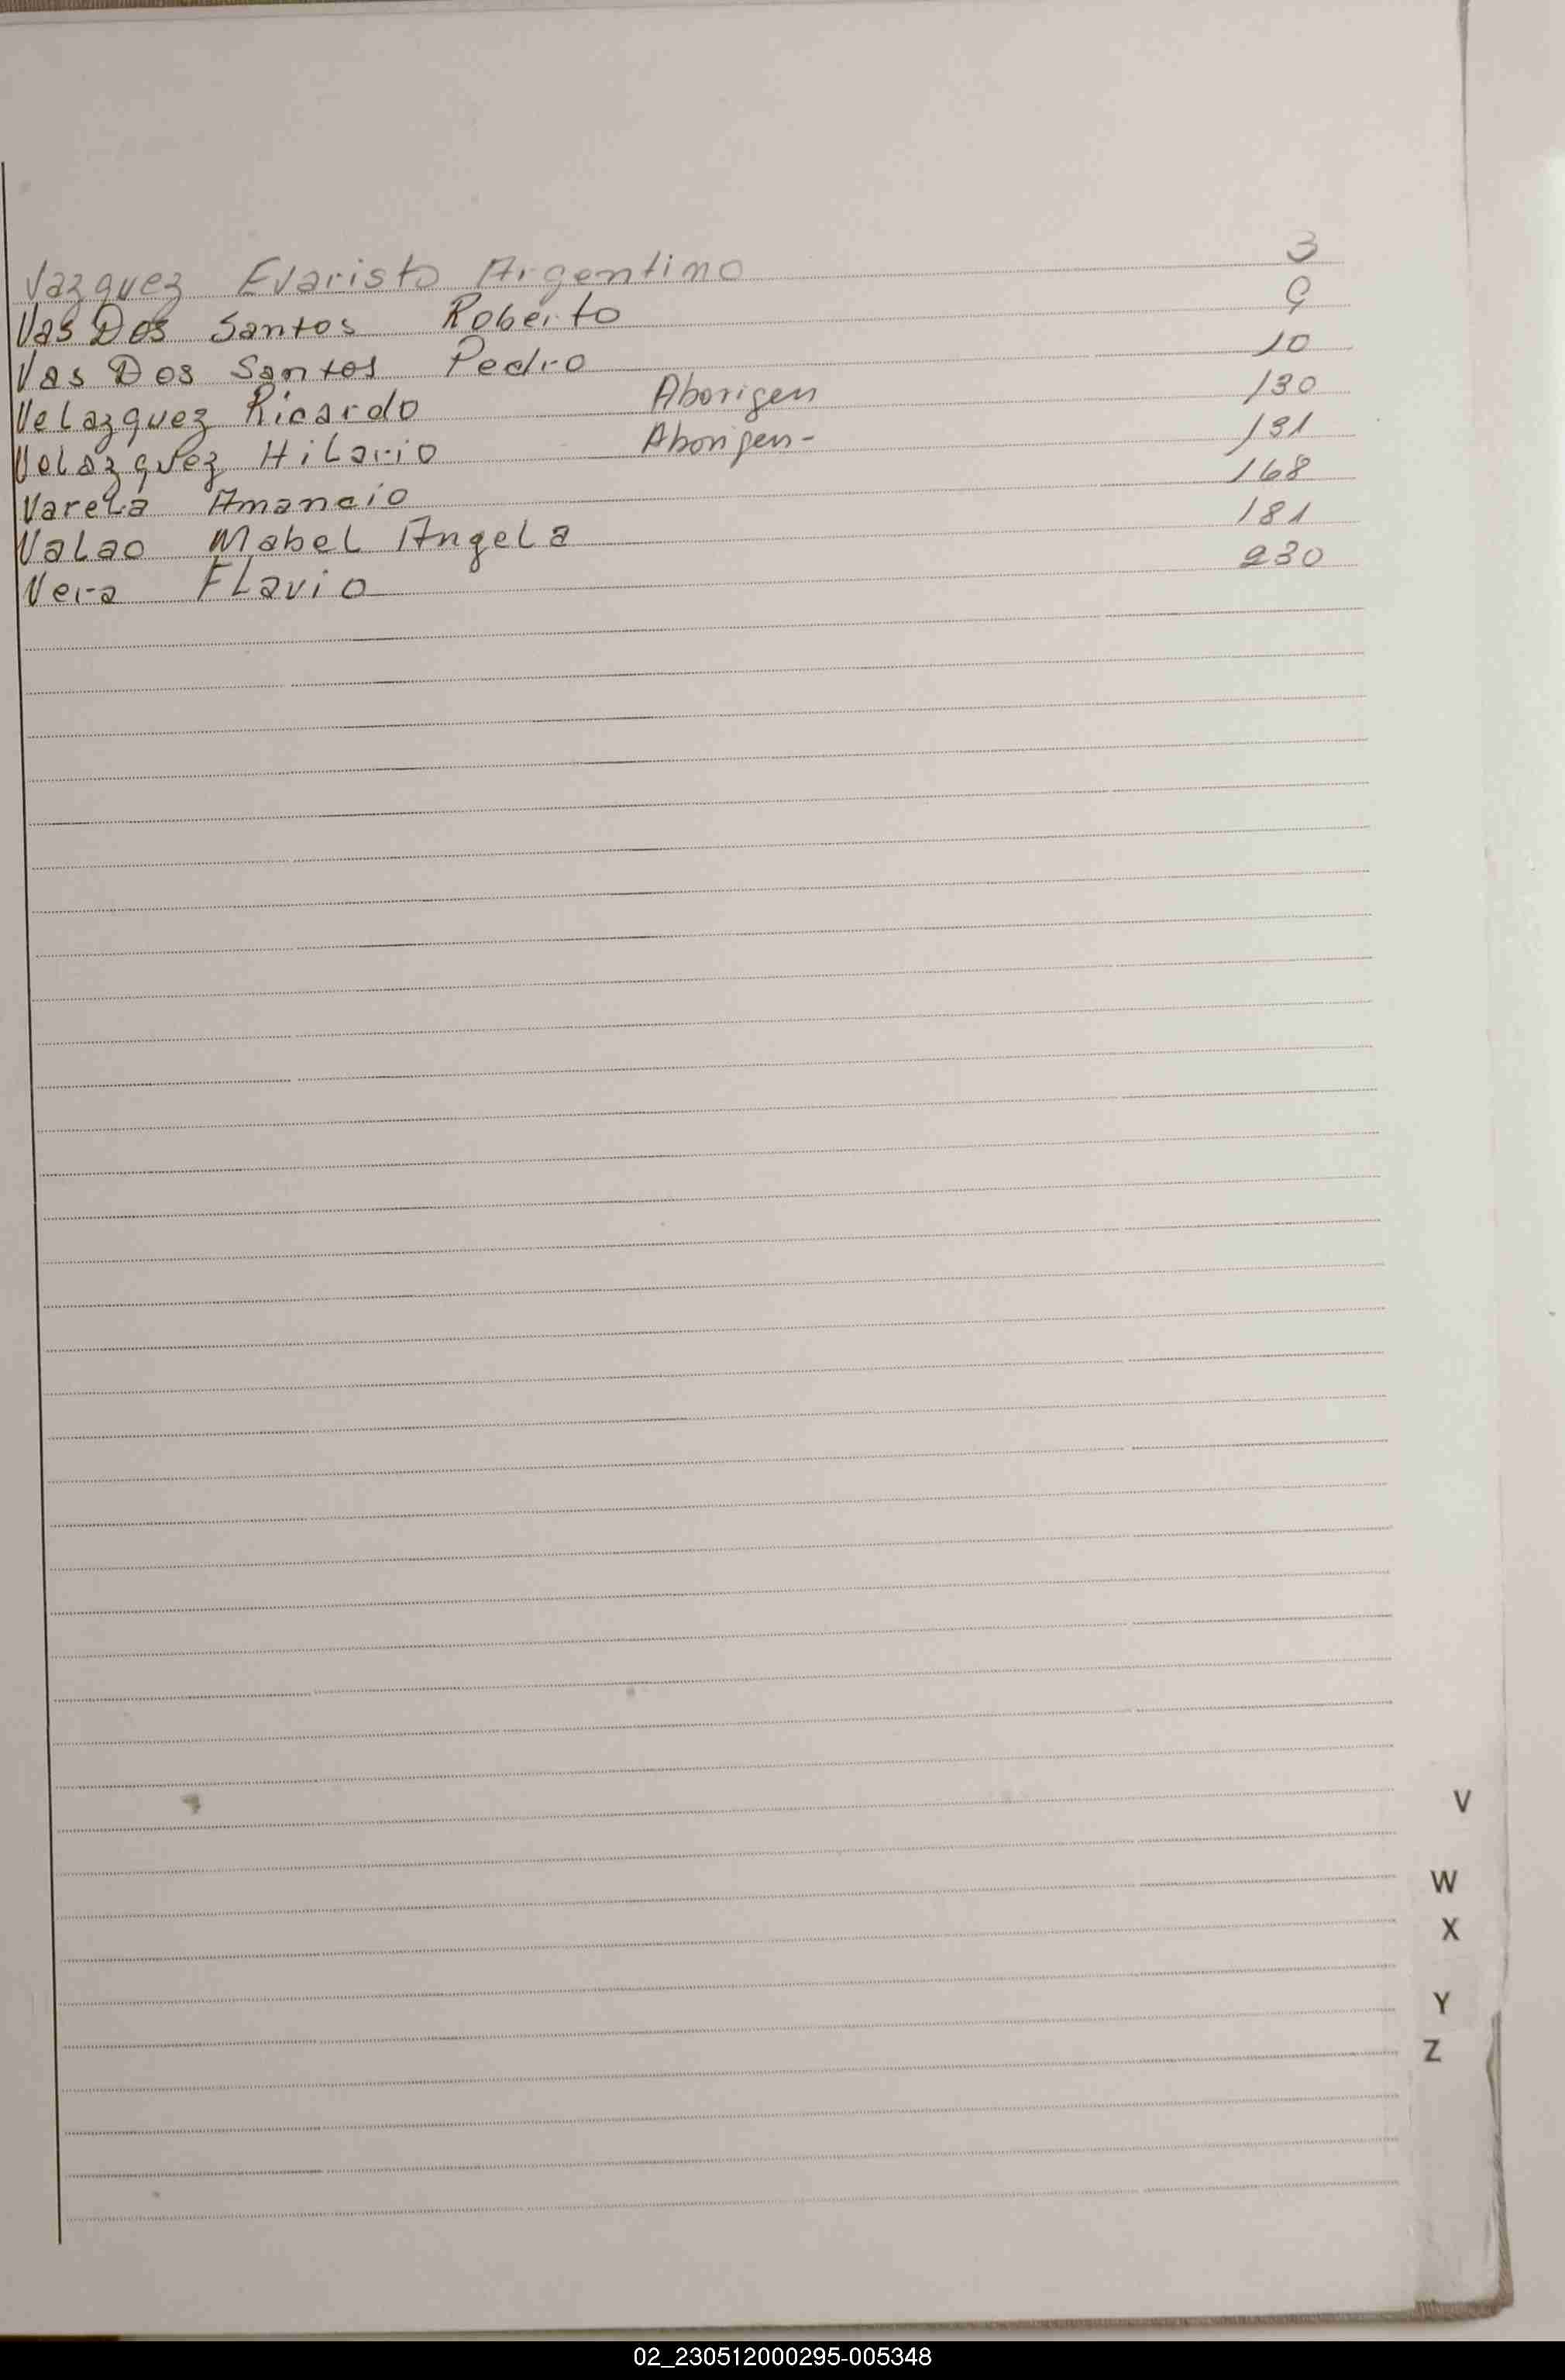 Vazquez Evaristo Argentino 3
Vas Dos Santos Roberto 9
Vas Dos Santos Pedro 10
Velazquez Ricardo Aborigen 130
Velazquez Hilario Aborigen- 131
Varela Amancio 168
Valao Mabel Angela 181
Vera Flavio 230
V
W
X
Y
Z
02_230512000295-005348